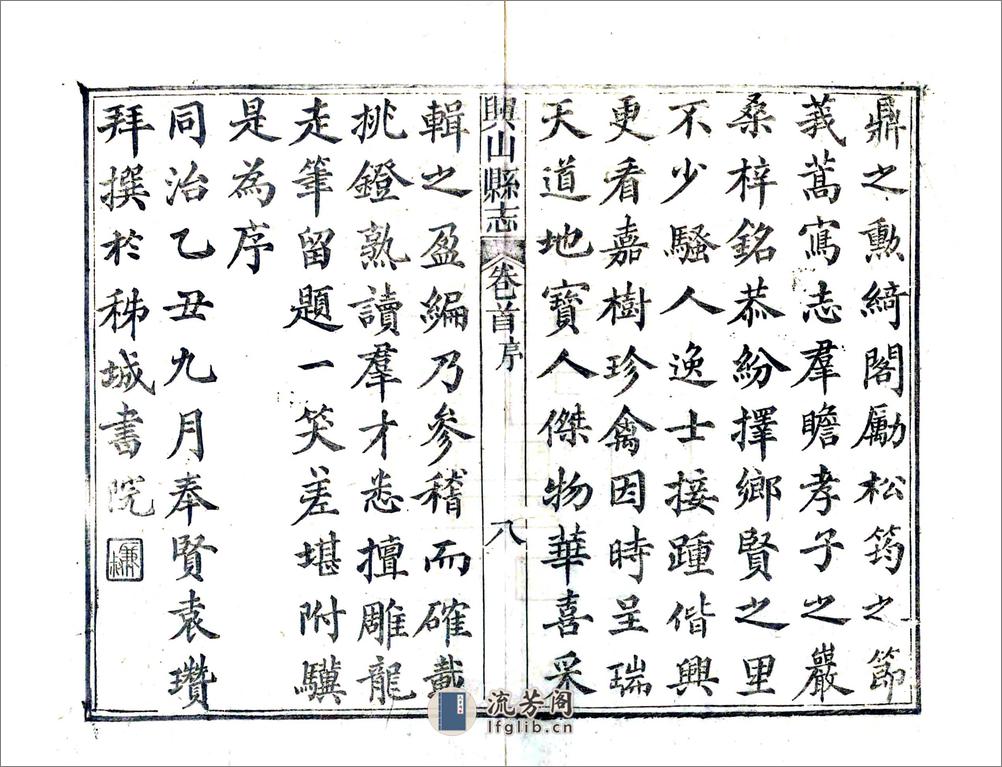 鼎之勲綺閣勵松筠之節
義蒿寫志羣瞻孝子之巖
桑梓銘恭紛擇鄉賢之里
不少騷人逸士接踵偕興
更看嘉樹珍禽因時呈瑞
天道地寶人傑物華喜采
興山縣志 卷首序 八
輯之盈編乃參稽而確載
挑鐙熟讀羣才悉擅雕龍
走筆留題一笑差堪附驥
是為序
同治乙丑九月奉賢袁瓚
拜撰於秭城書院
流芳阁
lfglib.cn